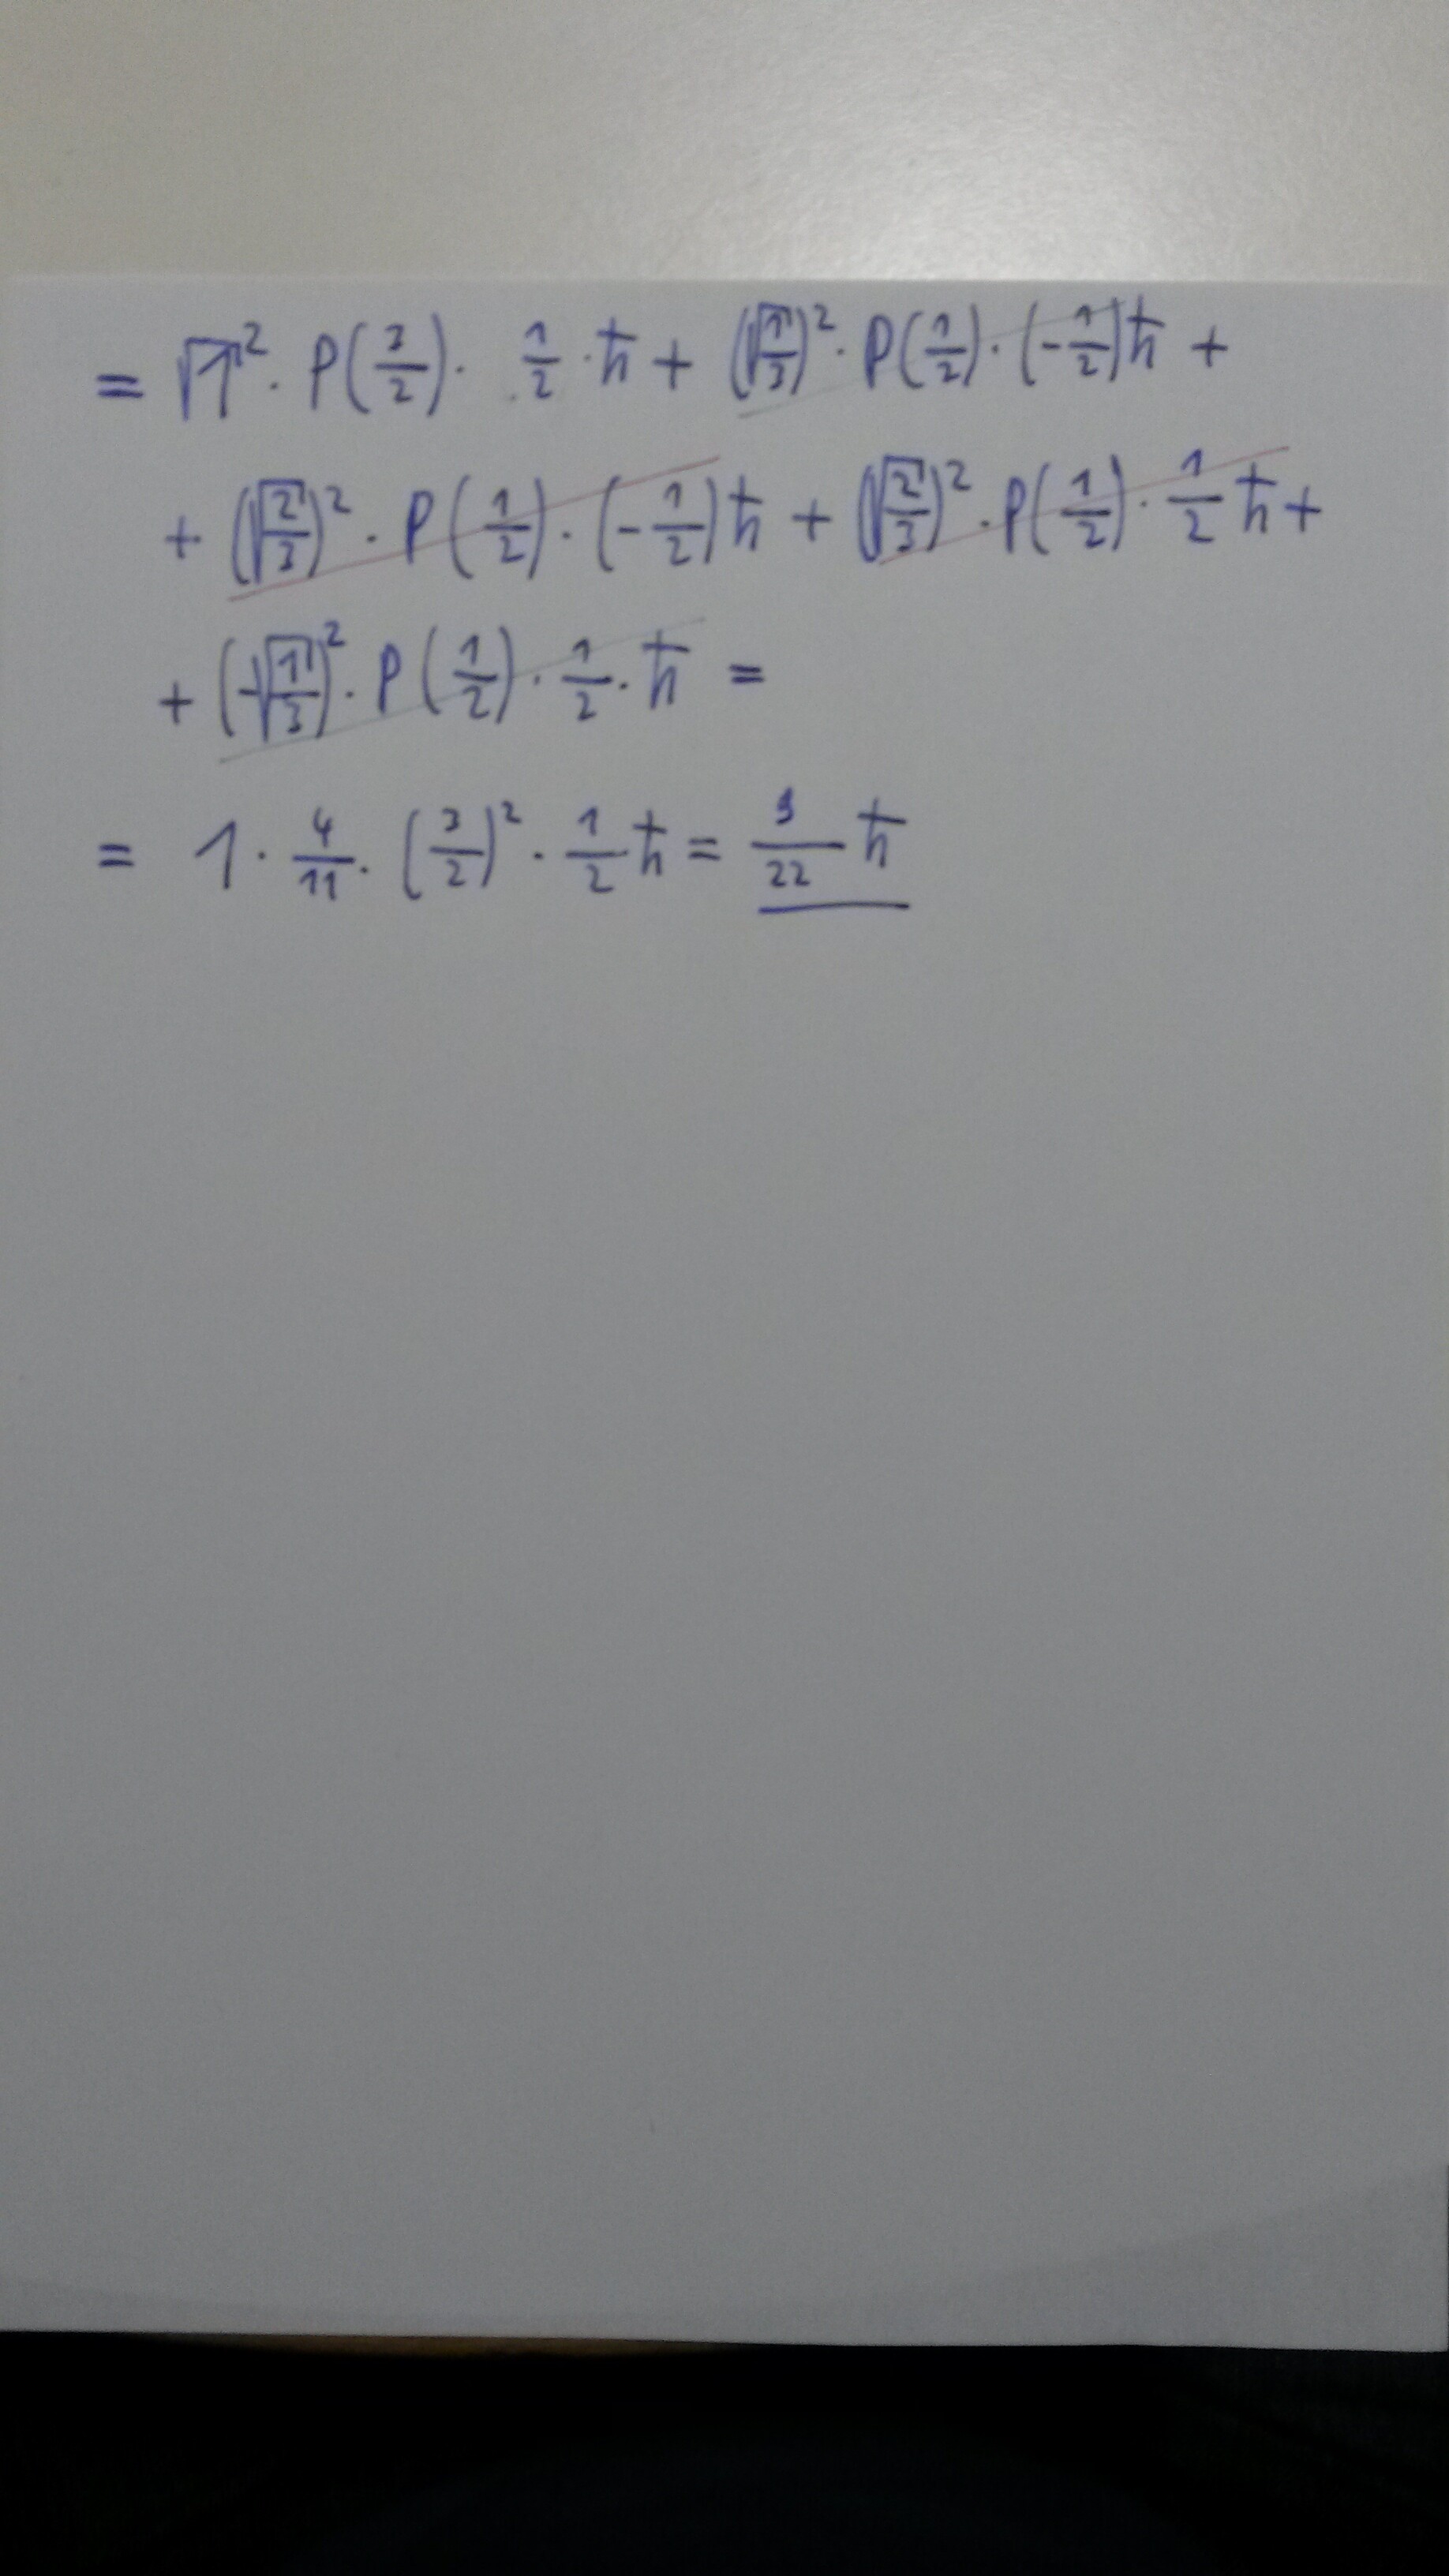 = √1² · P(3/2) · 1/2 · ħ + (√(1/3))² · P(1/2) · (-1/2)ħ +
+ (√(2/3))² · P(1/2) · (-1/2)ħ + (√(2/3))² · P(1/2) · 1/2 ħ +
+ (-√(1/3))² · P(1/2) · 1/2 · ħ =
= 1 · 4/11 · (3/2)² · 1/2 ħ = 9/22 ħ